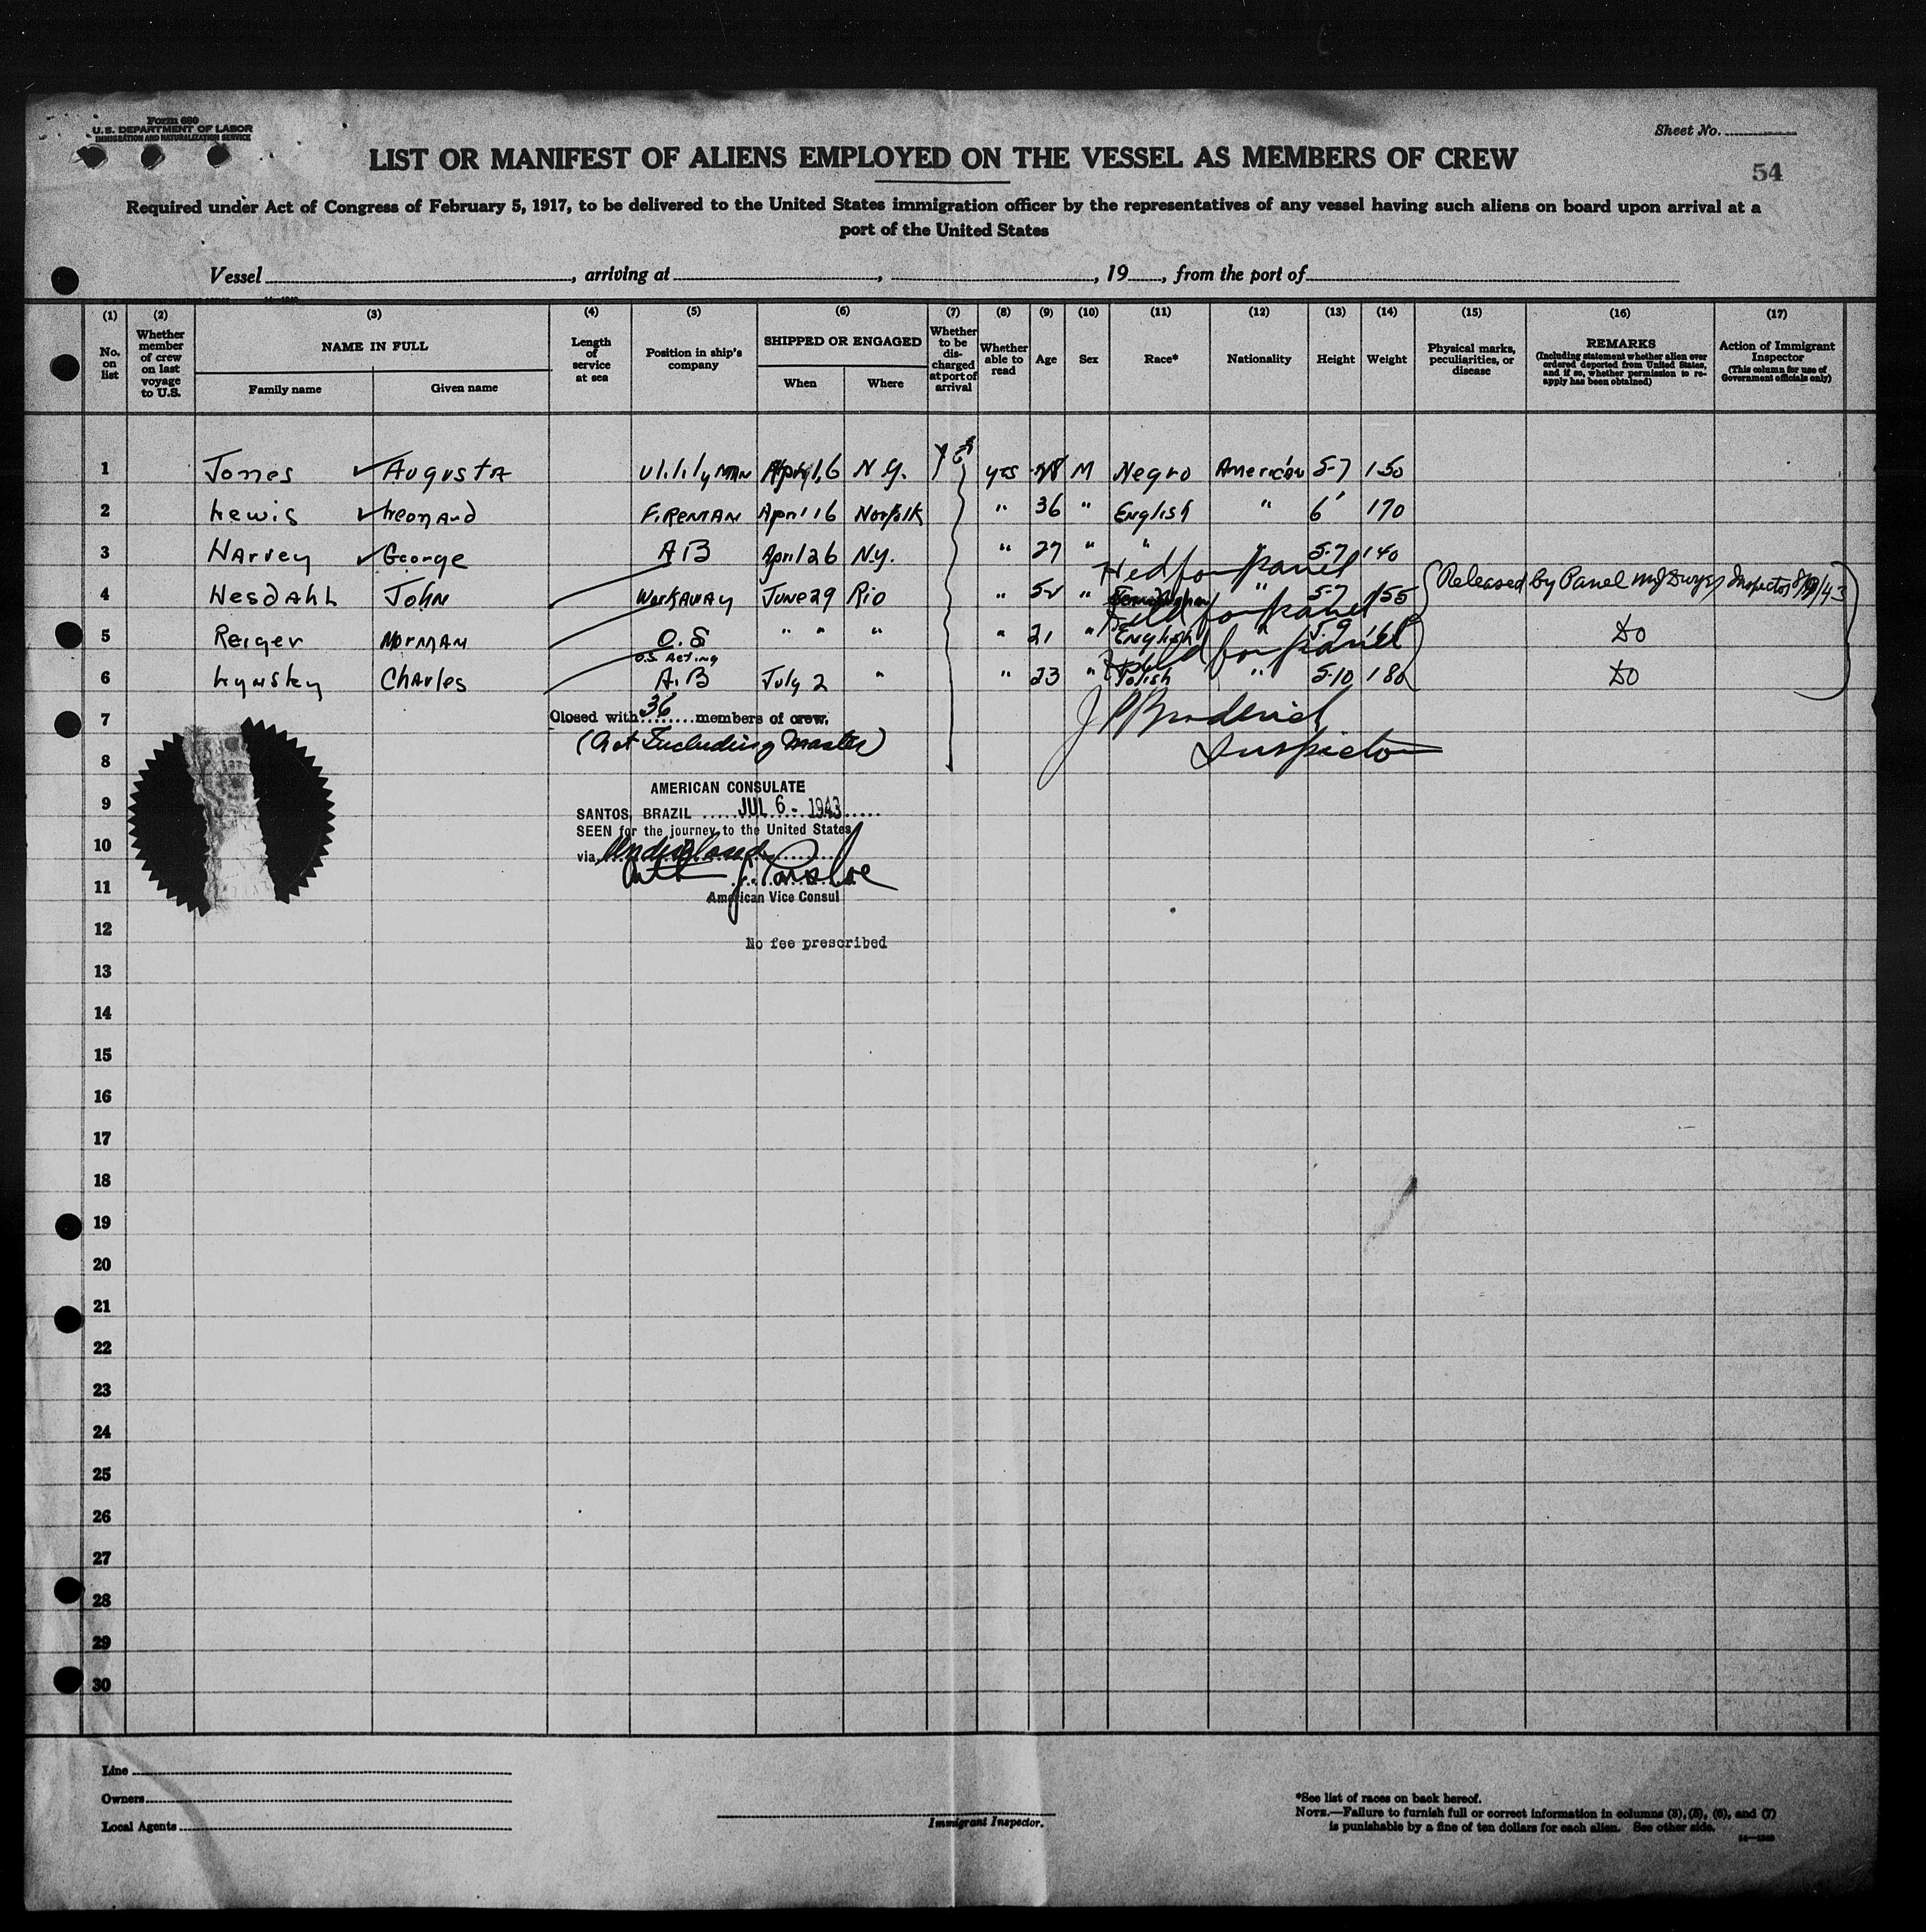 Form 680
U.S. DEPARTMENT OF LABOR
IMMIGRATION AND NATURALIZATION SERVICE
Sheet No.
LIST OR MANIFEST OF ALIENS EMPLOYED ON THE VESSEL AS MEMBERS OF CREW
54
Required under Act of Congress of February 5, 1917, to be delivered to the United States immigration officer by the representatives of any vessel having such aliens on board upon arrival at a
port of the United States
Vessel , arriving at , , 19 , from the port of
(1) (2) (3) (4) (5) (6) (7) (8) (9) (10) (11) (12) (13) (14) (15) (16) (17)
No. on list
Whether member of crew on last voyage to U.S.
NAME IN FULL
Family name
Given name
Length of service at sea
Position in ship's company
SHIPPED OR ENGAGED
When
Where
Whether to be discharged at port of arrival
Whether able to read
Age
Sex
Race*
Nationality
Height
Weight
Physical marks, peculiarities, or disease
REMARKS
(Including statement whether alien ever ordered deported from United States, and if so, whether permission to reapply has been obtained)
Action of Immigrant Inspector
(This column for use of Government officials only)
1 Jones ✓ Augusta Utility Man April 16 N.Y. Yes yes M Negro American 5-7 150
2 Lewis ✓ Leonard Fireman April 16 Norfolk " 36 " English " 6' 170
3 Harvey ✓ George AB April 26 N.Y. " 27 " " " 5-7 140
Held for panel
4 Hesdahl John Workaway June 29 Rio " 52 " " 5-7 155 Released by Panel Inspector
Held for panel
5 Reiger Norman O.S " " " " 21 " English " 5-9 Do
Held for panel
O.S. Acting
6 Lynsky Charles A.B July 2 " " 23 " Polish " 5-10 180 Do
7 Closed with 36 members of crew.
(Not Including Master)
J P Broderick
Inspector
8
AMERICAN CONSULATE
9 SANTOS, BRAZIL JUL 6 - 1943
SEEN for the journey to the United States
10 via Undisclosed
11 American Vice Consul
12
No fee prescribed
13
14
15
16
17
18
19
20
21
22
23
24
25
26
27
28
29
30
Line
Owners
Local Agents
Immigrant Inspector.
*See list of races on back hereof.
NOTE.—Failure to furnish full or correct information in columns (3), (5), (6), and (7)
is punishable by a fine of ten dollars for each alien. See other side.